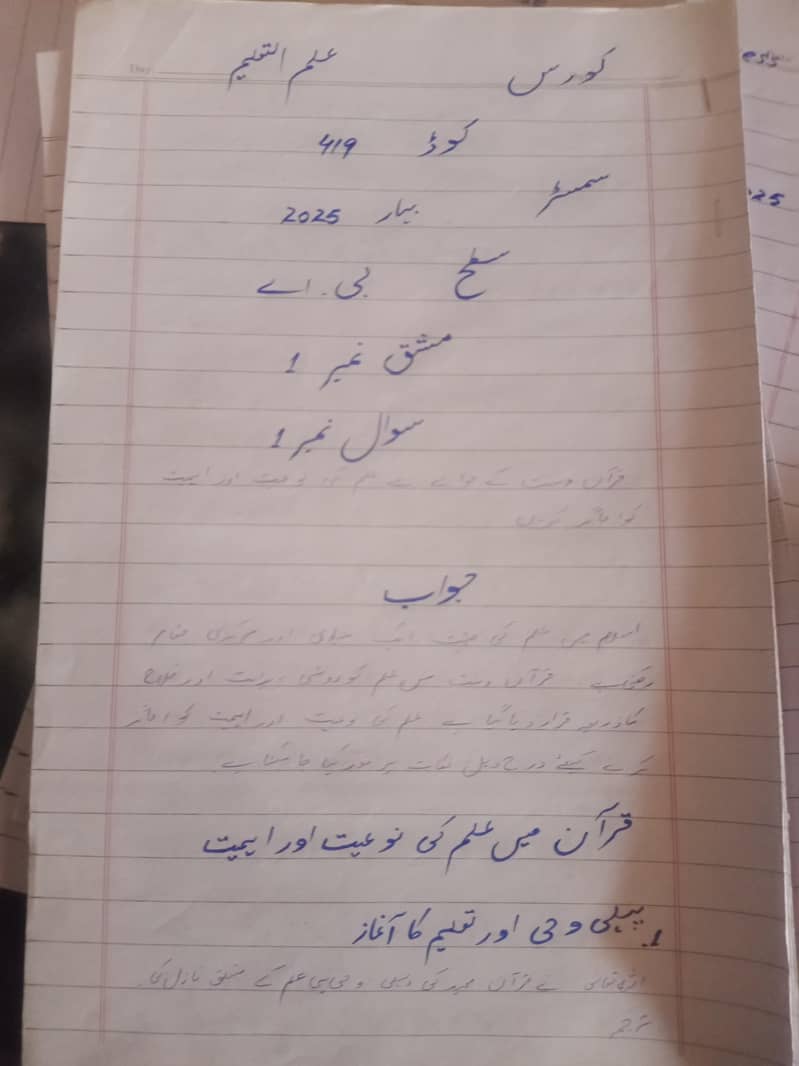 کورس علم التعلیم
کوڈ 419
سمسٹر بہار 2025
سطح بی۔اے
مشق نمبر 1
سوال نمبر 1
قرآن وسنت کے حوالے سے علم کی نوعیت اور اہمیت
کو اجاگر کریں
جواب
اسلام میں علم کی حیثیت ایک بنیادی اور مرکزی مقام
رکھتا ہے۔ قرآن وسنت میں علم کو روشنی، ہدایت اور فلاح
کا ذریعہ قرار دیا گیا ہے علم کی نوعیت اور اہمیت کو اجاگر
کرنے کیلئے درج ذیل نکات پر غور کیا جا سکتا ہے
قرآن میں علم کی نوعیت اور اہمیت
1. پہلی وحی اور تعلیم کا آغاز
اللہ تعالی نے قرآن مجید کی پہلی وحی ہی علم کے متعلق نازل کی۔
ترجمہ